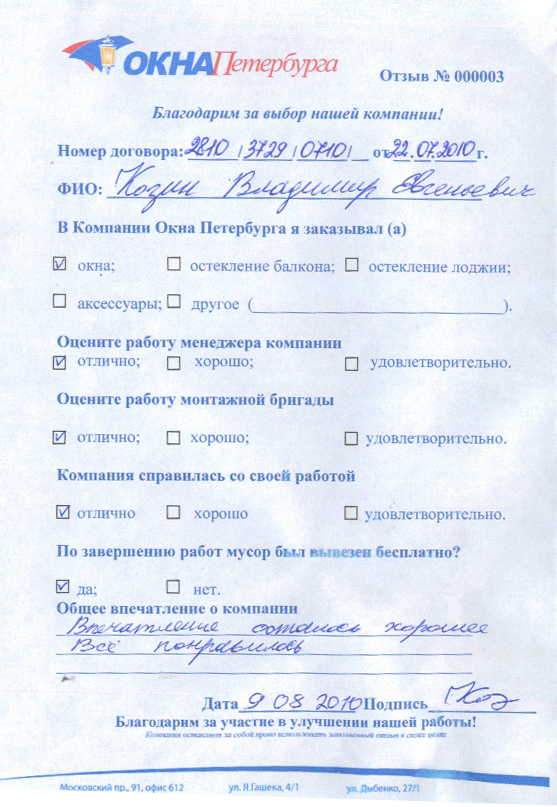 ОКНА Петербурга
Отзыв № 000003
Благодарим за выбор нашей компании!
Номер договора: 2810 / 3729 / 0710 / от 22.07.2010 г.
ФИО: Козин Владимир Евгеньевич
В Компании Окна Петербурга я заказывал (а)
окна; остекление балкона; остекление лоджии;
аксессуары; другое (________________).
Оцените работу менеджера компании
отлично; хорошо; удовлетворительно.
Оцените работу монтажной бригады
отлично; хорошо; удовлетворительно.
Компания справилась со своей работой
отлично хорошо удовлетворительно.
По завершению работ мусор был вывезен бесплатно?
да; нет.
Общее впечатление о компании
Впечатление осталось хорошее
Всё понравилось
Дата 9 08 2010 Подпись Коз
Благодарим за участие в улучшении нашей работы!
Компания оставляет за собой право использовать заполненный отзыв в своих целях
Московский пр., 91, офис 612 ул. Я.Гашека, 4/1 ул. Дыбенко, 27/1